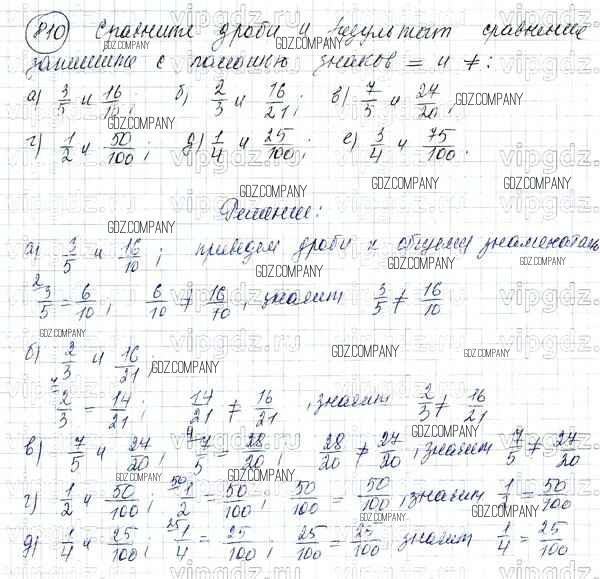 810 Сравните дроби и результат сравнения
запишите с помощью знаков = и ≠:
а) 3/5 и 16/10; б) 2/3 и 16/21; в) 7/5 и 24/20,
г) 1/2 и 50/100; д) 1/4 и 25/100; е) 3/4 и 75/100.
Решение:
а) 3/5 и 16/10; приведем дроби к общему знаменателю
2 3/5 = 6/10, 6/10 ≠ 16/10, значит 3/5 ≠ 16/10
б) 2/3 и 16/21;
7 2/3 = 14/21; 14/21 ≠ 16/21, значит 2/3 ≠ 16/21
в) 7/5 и 24/20, 4 7/5 = 28/20; 28/20 ≠ 24/20, значит 7/5 ≠ 24/20
г) 1/2 и 50/100; 50 1/2 = 50/100; 50/100 = 50/100, значит 1/2 = 50/100
д) 1/4 и 25/100; 25 1/4 = 25/100; 25/100 = 25/100 значит 1/4 = 25/100
GDZ.COMPANY
vipgdz.ru